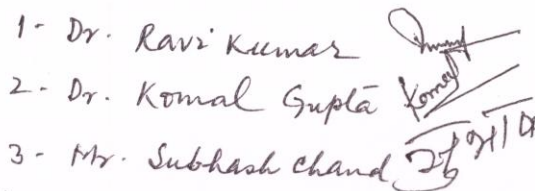 1- Dr. Ravi Kumar
2- Dr. Komal Gupta Komal
3- Mr. Subhash Chand